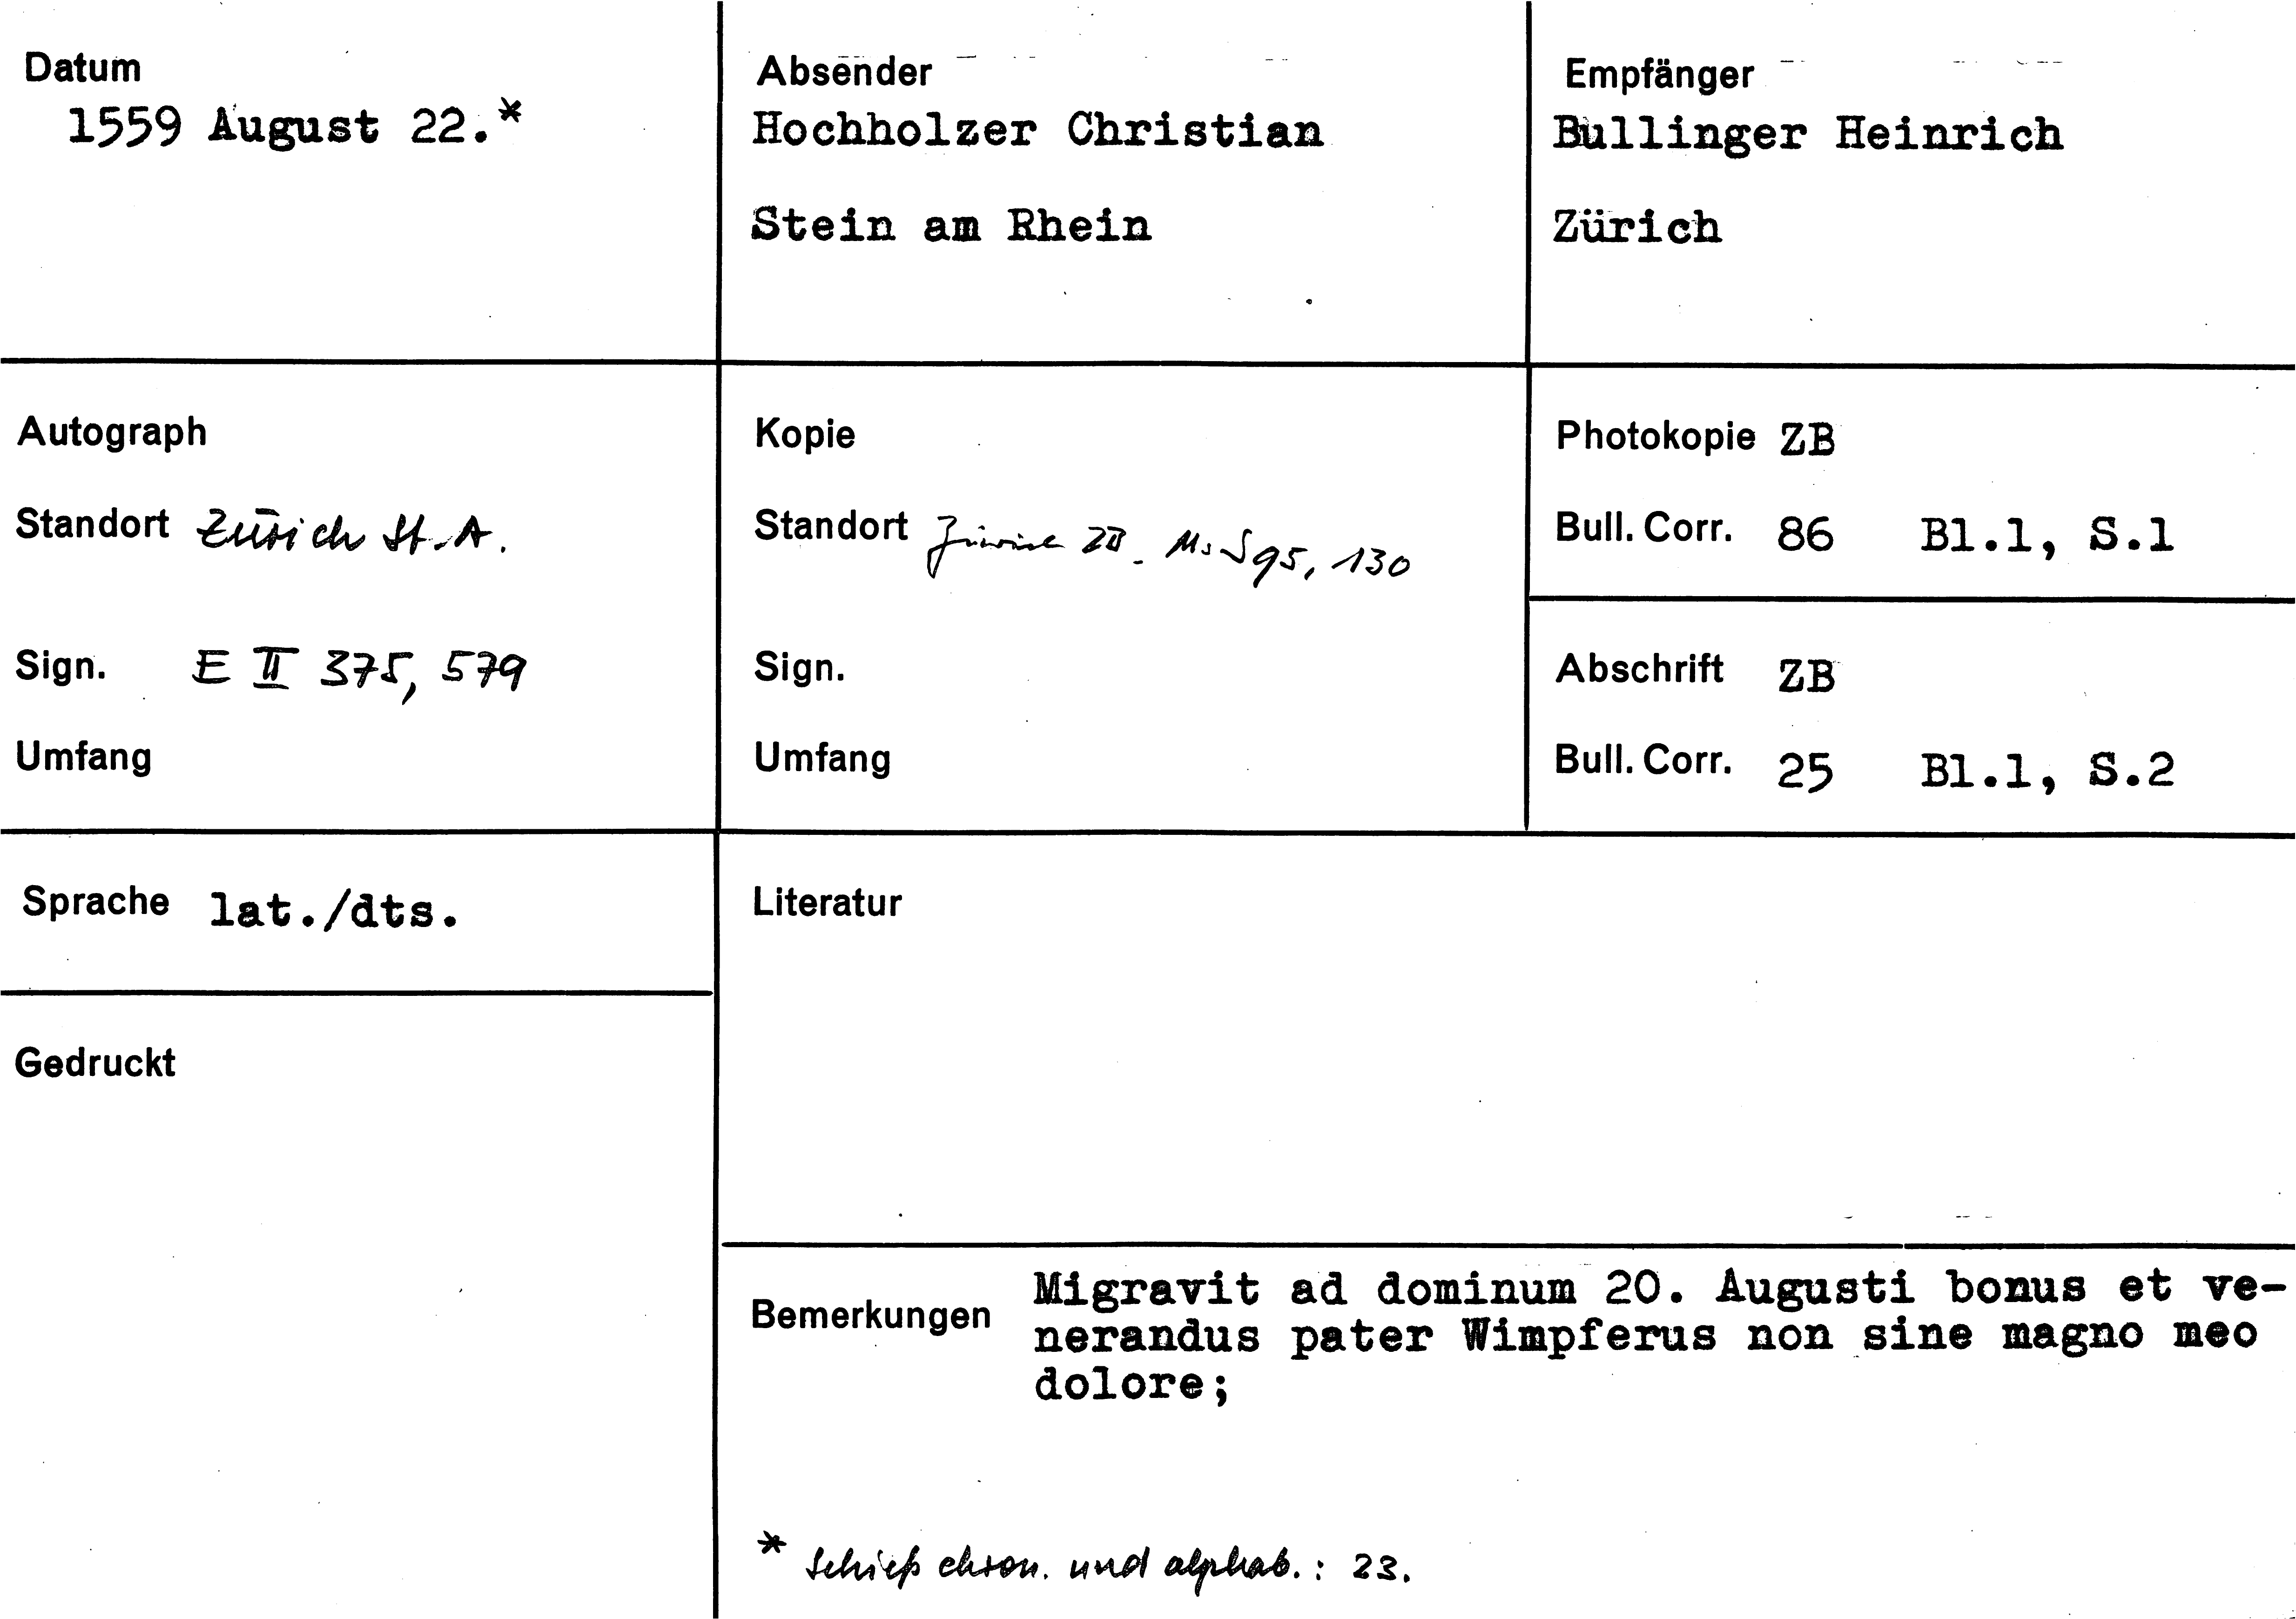 Datum
1559 August 22.*
Absender
Hochholzer Christian
Stein am Rhein
Empfänger
Bullinger Heinrich
Zürich
Autograph
Standort Zürich St.A.
Sign. E II 375, 579
Umfang
Kopie
Standort Zürich ZB. Ms S 95, 130
Sign.
Umfang
Photokopie ZB
Bull. Corr. 86 Bl.1, S.1
Abschrift ZB
Bull. Corr. 25 Bl.1, S.2
Sprache lat./dts.
Gedruckt
Literatur
Bemerkungen
Migravit ad dominum 20. Augusti bonus et ve-
nerandus pater Wimpferus non sine magno meo
dolore;
* Schieß chron. und alphab.: 23.